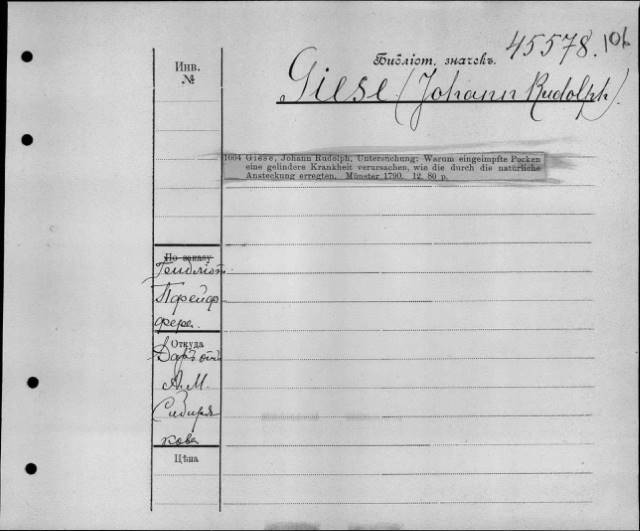 45578.
Инв.
№
Библіот. значекъ.
Giese (Johann Rudolph).
1604 Giese, Johann Rudolph, Untersuchung: Warum eingeimpfte Pocken
eine gelindere Krankheit verursachen, wie die durch die natürliche
Ansteckung erregten. Münster 1790. 12. 80 p.
По заказу
Пфейф
фера.
Откуда
Даръ отъ
А. М.
Сибиря
кова
Цѣна